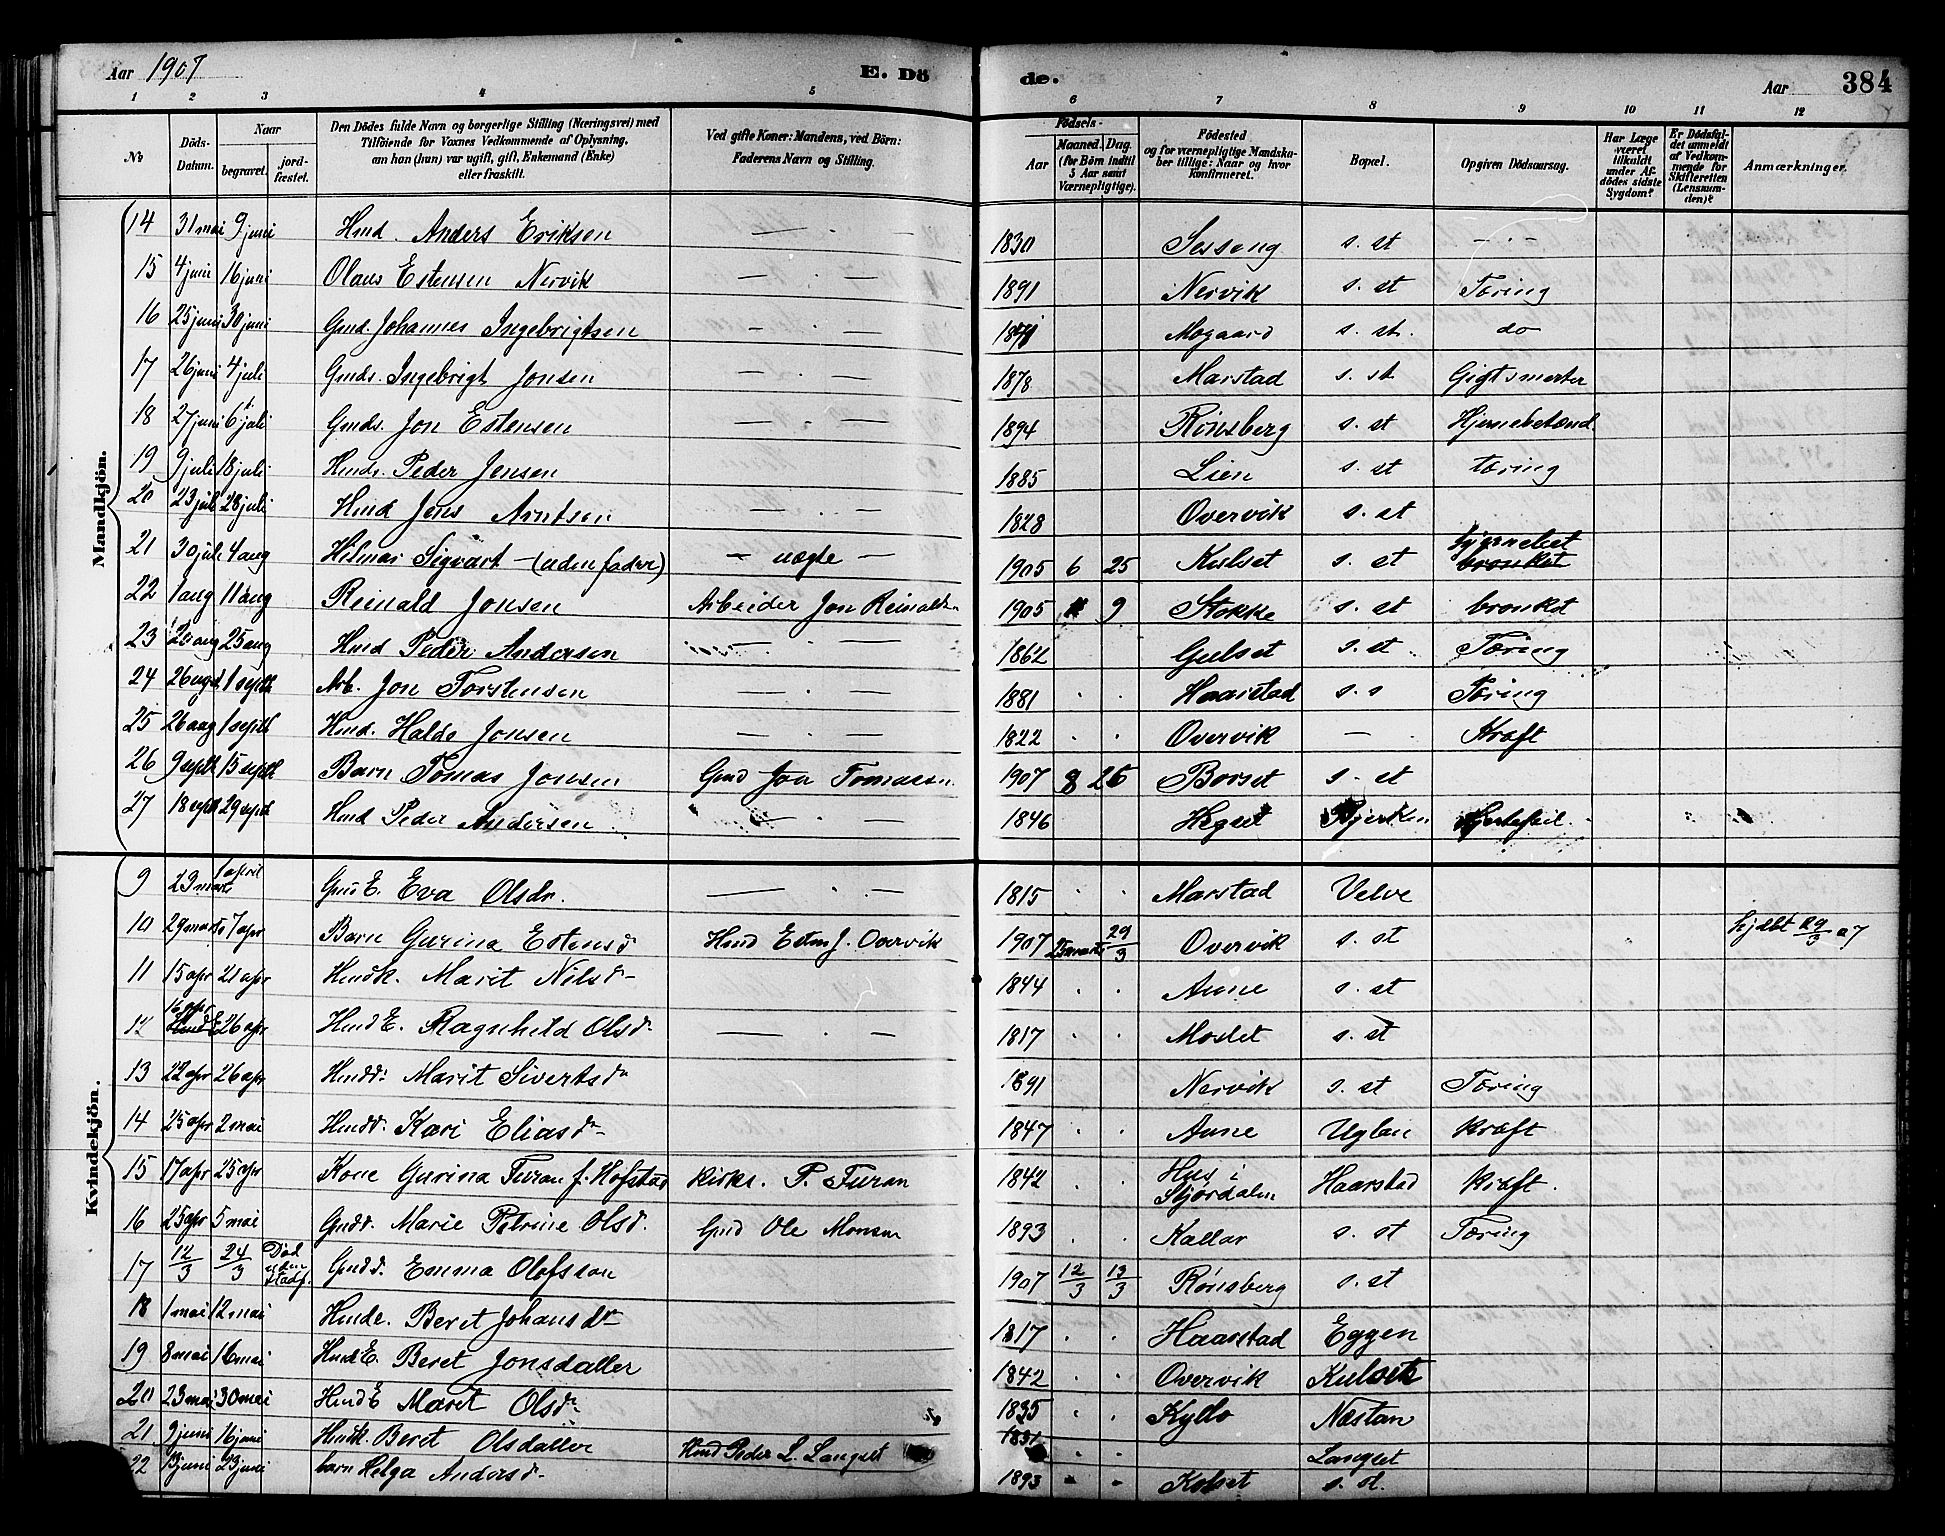 Aar 1907
E. Dö
de.
Aar
384
1 2 3 4 5 6 7 8 9 10 11 12
No
Döds-Datum.
Naar
begravet.
jord-fæstet.
Den Dödes fulde Navn og borgerlige Stilling (Næringsvei) med
Tilföiende for Voxnes Vedkommende af Oplysning,
om han (hun) var ugift, gift, Enkemand (Enke)
eller fraskilt.
Ved gifte Koner: Mandens, ved Börn:
Faderens Navn og Stilling.
Födsels-
Aar
Maaned. Dag.
(for Börn indtil
5 Aar samt
Værnepligtige).
Födested
og for værnepligtige Mandska-
ber tillige: Naar og hvor
konfirmeret.
Bopæl.
Opgiven Dödsaarsag.
Har Læge
været
tilkaldt
under Af-
dödes sidste
Sygdom?
Er Dödsfal-
det anmeldt
af Vedkom-
mende for
Skifteretten
(Lensman-
den)?
Anmærkninger.
Mandkjön.
14 31 mai 9 juni Hmd. Anders Eriksen — . — 1830 Sessong s. st — . —
15 4 juni 16 juni Olaus Estensen Nervik — . — 1891 Nervik s. st Tæring
16 25 juni 30 juni Gmd. Johannes Ingebrigtsen — . — Mogaard s. st. do
17 26 juni 4 juli Gmds. Ingebrigt Jonsen — . — 1878 Marstad s. st Gigtsmerter
18 27 juni 6 juli Gmds. Jon Estensen — . — 1894 Rönsberg s. st Hjernebetænd
19 9 juli 18 juli Hmds. Peder Jensen — . — 1885 Lien s. st tæring
20 23 juli 28 juli Hmd Jens Arntsen — . — 1828 Overvik s. st
21 30 juli 4 aug Hilmar Sigvart — (uden fader) — uægte — 1905 6 25 Kulset s. st hjernebet bronket
22 1 aug 11 aug Reinald Jonsen Arbeider Jon Reinaldsen 1905 9 Stokke s. st bronket
23 20 aug 25 aug Hmd Peder Andersen — 1862 Gulset s. st Tæring
24 26 aug 1 septb Arb. Jon Torstensen — . — 1881 . . Haarstad s. s Tæring
25 26 aug 1 septb Hmd. Halde Jonsen — . — 1822 . . Overvik — Kræft
26 9 septb 15 septb Barn Tomas Jonsen Gmd Jon Tomassen 1907 8 26 Borset s. st
27 18 sept 29 sept Hmd Peder Andersen — . — 1846 Hegset Bjerken Hjertefeil.
Kvindekjön.
9 23 marts 1 april Gmd E. Eva Olsdr. — . — 1815 . . Marstad Velve
10 29 marts 7 apr Barn Gurina Estensd Hmd Esten J. Overvik 1907 25 marts 29/3 Overvik s. st hjdbt 29/3 07
11 15 apr 21 apr Hmdk. Marit Nilsd 1844 . Aune s. st
12 16 apr Hmd E 26 apr Hmd E. Ragnhild Olsd — . — 1817 . . Moslet s. st
13 22 apr 26 apr Hmdd. Marit Sivertsd 1891 . Nervik s. st Tæring
14 25 apr 2 mai Hmdd. Kari Eliasd 1847 . . Aune Uglan kræft
15 17 apr 25 apr Kone Gurina Furan f. Hofstad kirks. P. Furan 1842 . Hus i Stjørdalen Haarstad kræft.
16 25 apr 5 mai Gmdd. Marie Petrine Olsd. Gmd Ole Monsen 1893 . . Kallar s. st Tæring
17 12/3 24/3 Død uden stadf. Gmdd. Emma Olofsson 1907 12/3 13/3 Rönsberg s. st
18 1 mai 12 mai Hmde. Beret Johansd 1817 . . Haarstad Eggen
19 8 mai 16 mai Hmd E. Beret Jonsdatter 1842 . . Overvik Kulset
20 23 mai 30 mai Hmd E Marit Olsd 1835 . . Kyllo Næstan
21 9 juni 16 juni Hmdk. Beret Olsdatter Hmd Peder L. Langset 1831 . Langset
22 13 juni 23 juni barn Helga Andersd 1893 . . Kolset s. d.